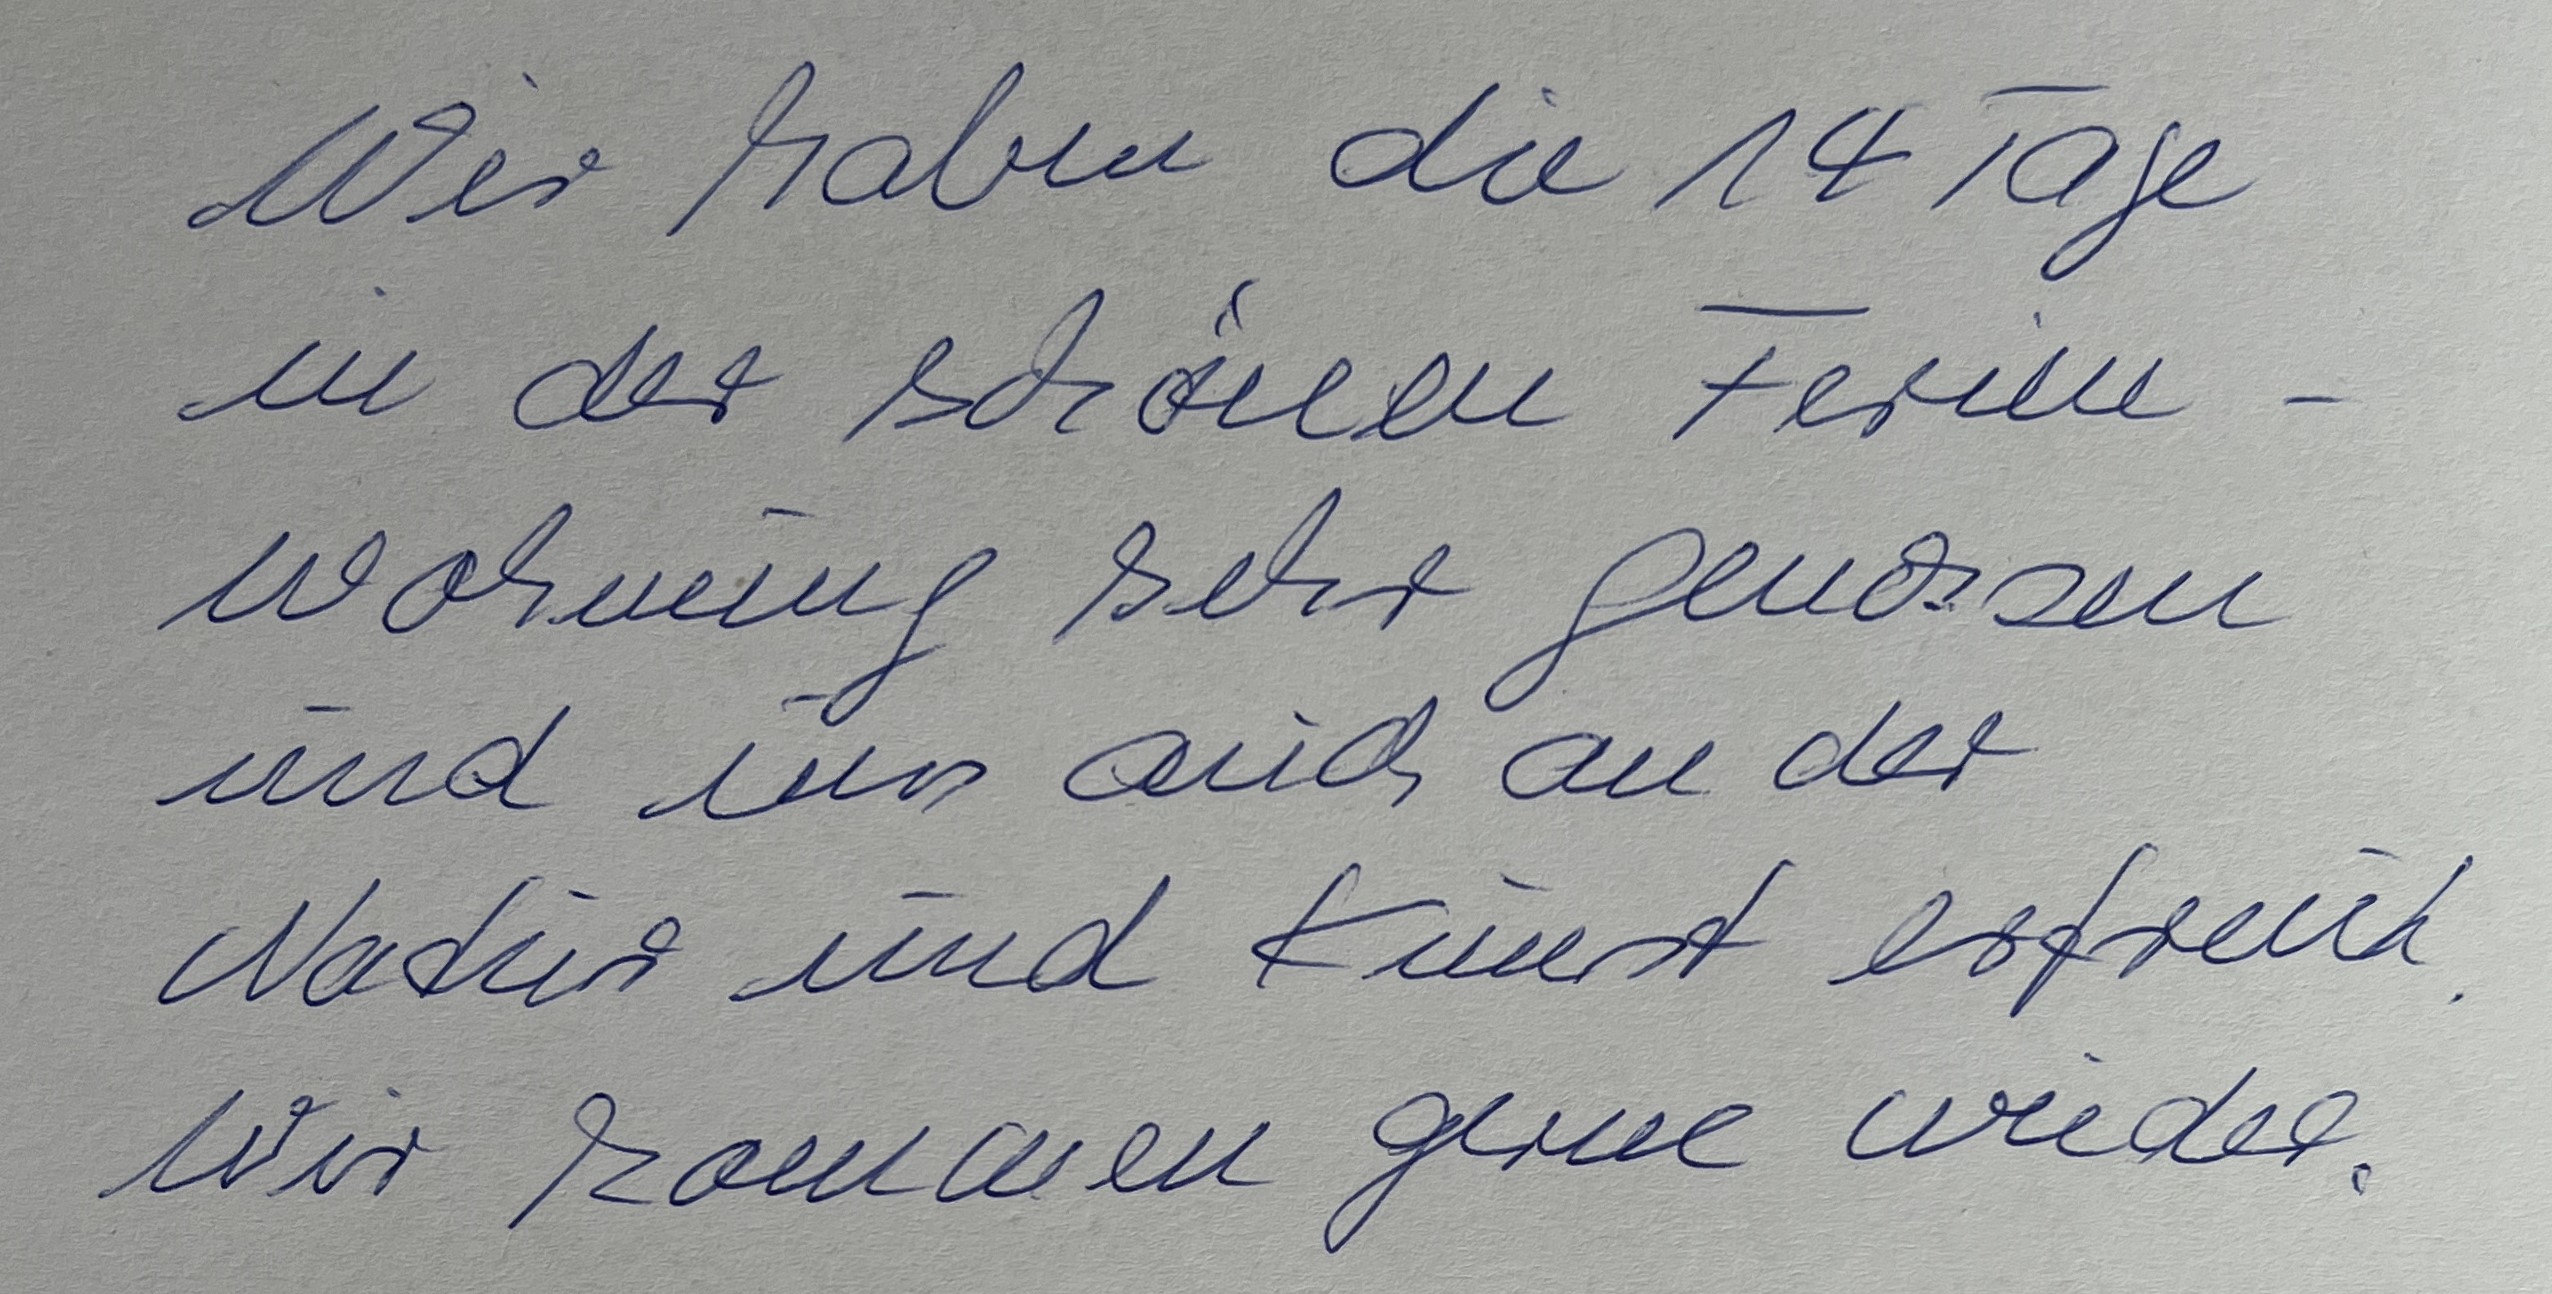 Wir haben die 14 Tage
in der schönen Ferien-
wohnung sehr genossen
und uns auch an der
Natur und Kunst erfreut.
Wir kommen gerne wieder.